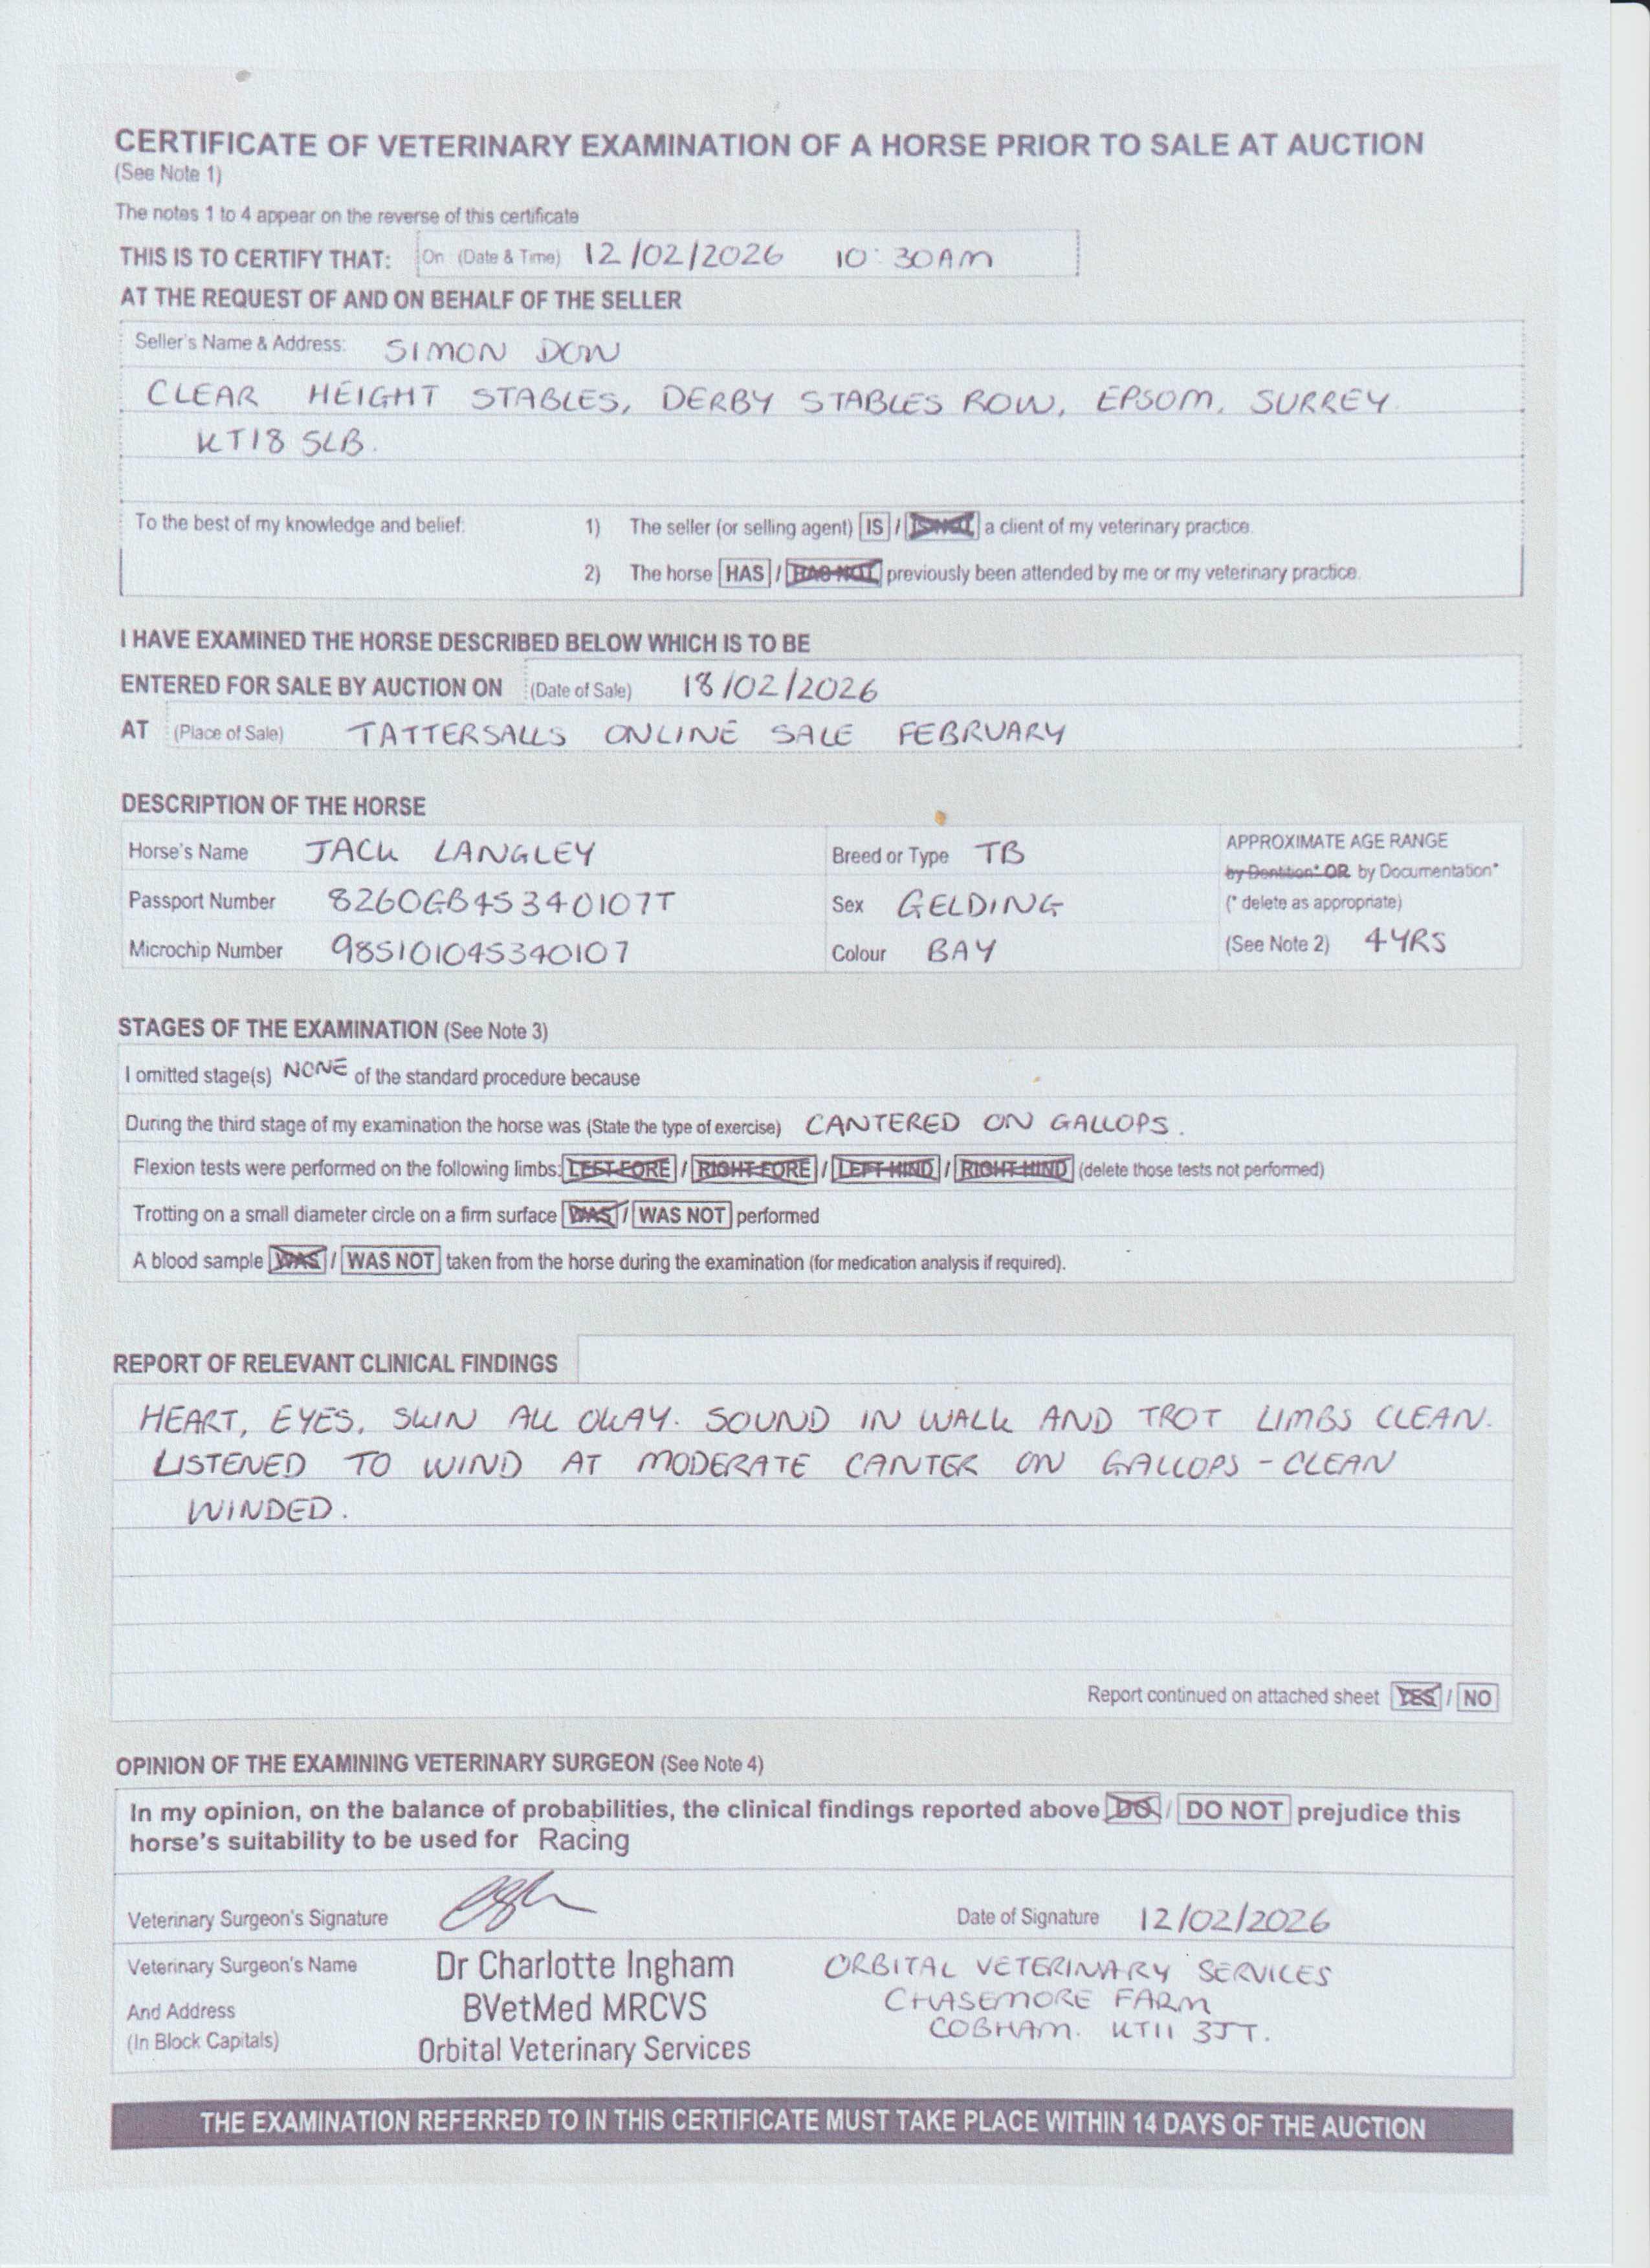 CERTIFICATE OF VETERINARY EXAMINATION OF A HORSE PRIOR TO SALE AT AUCTION
(See Note 1)
The notes 1 to 4 appear on the reverse of this certificate
THIS IS TO CERTIFY THAT: On (Date & Time) 12/02/2026 10:30AM
AT THE REQUEST OF AND ON BEHALF OF THE SELLER
Seller's Name & Address: SIMON DOW
CLEAR HEIGHT STABLES, DERBY STABLES ROW, EPSOM, SURREY.
KT18 5LB.
To the best of my knowledge and belief: 1) The seller (or selling agent) IS / IS NOT a client of my veterinary practice.
2) The horse HAS / HAS NOT previously been attended by me or my veterinary practice.
I HAVE EXAMINED THE HORSE DESCRIBED BELOW WHICH IS TO BE
ENTERED FOR SALE BY AUCTION ON (Date of Sale) 18/02/2026
AT (Place of Sale) TATTERSALLS ONLINE SALE FEBRUARY
DESCRIPTION OF THE HORSE
Horse's Name JACK LANGLEY Breed or Type TB APPROXIMATE AGE RANGE
by Dentition* OR by Documentation*
Passport Number 826OGB45340107T Sex GELDING (* delete as appropriate)
Microchip Number 985101045340107 Colour BAY (See Note 2) 4YRS
STAGES OF THE EXAMINATION (See Note 3)
I omitted stage(s) NONE of the standard procedure because
During the third stage of my examination the horse was (State the type of exercise) CANTERED ON GALLOPS.
Flexion tests were performed on the following limbs: LEFT FORE / RIGHT FORE / LEFT HIND / RIGHT HIND (delete those tests not performed)
Trotting on a small diameter circle on a firm surface WAS / WAS NOT performed
A blood sample WAS / WAS NOT taken from the horse during the examination (for medication analysis if required).
REPORT OF RELEVANT CLINICAL FINDINGS
HEART, EYES, SKIN ALL OKAY. SOUND IN WALK AND TROT LIMBS CLEAN.
LISTENED TO WIND AT MODERATE CANTER ON GALLOPS - CLEAN
WINDED.
Report continued on attached sheet YES / NO
OPINION OF THE EXAMINING VETERINARY SURGEON (See Note 4)
In my opinion, on the balance of probabilities, the clinical findings reported above DO / DO NOT prejudice this
horse's suitability to be used for Racing
Veterinary Surgeon's Signature Date of Signature 12/02/2026
Veterinary Surgeon's Name Dr Charlotte Ingham ORBITAL VETERINARY SERVICES
And Address BVetMed MRCVS CHASEMORE FARM
(In Block Capitals) Orbital Veterinary Services COBHAM. KT11 3JT.
THE EXAMINATION REFERRED TO IN THIS CERTIFICATE MUST TAKE PLACE WITHIN 14 DAYS OF THE AUCTION